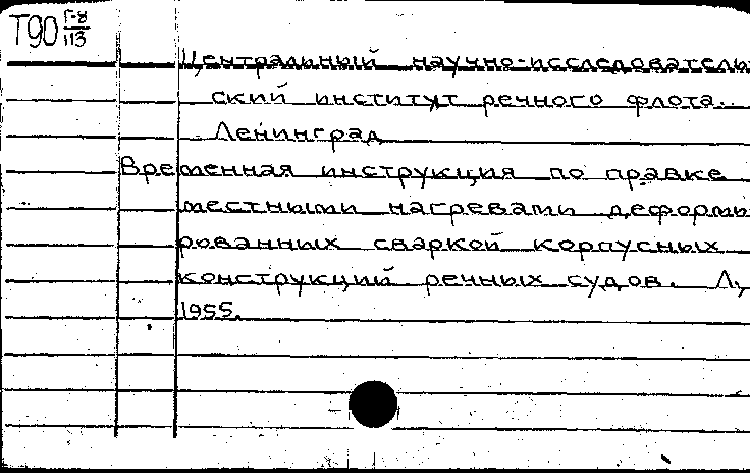 Т90 Г-8
113
Центральный научно-исследователь
ский институт речного флота..
Ленинград
Временная инструкция по правке
местными нагревами деформи
рованных сваркой корпусных
конструкций речных судов. Л.,
1955.